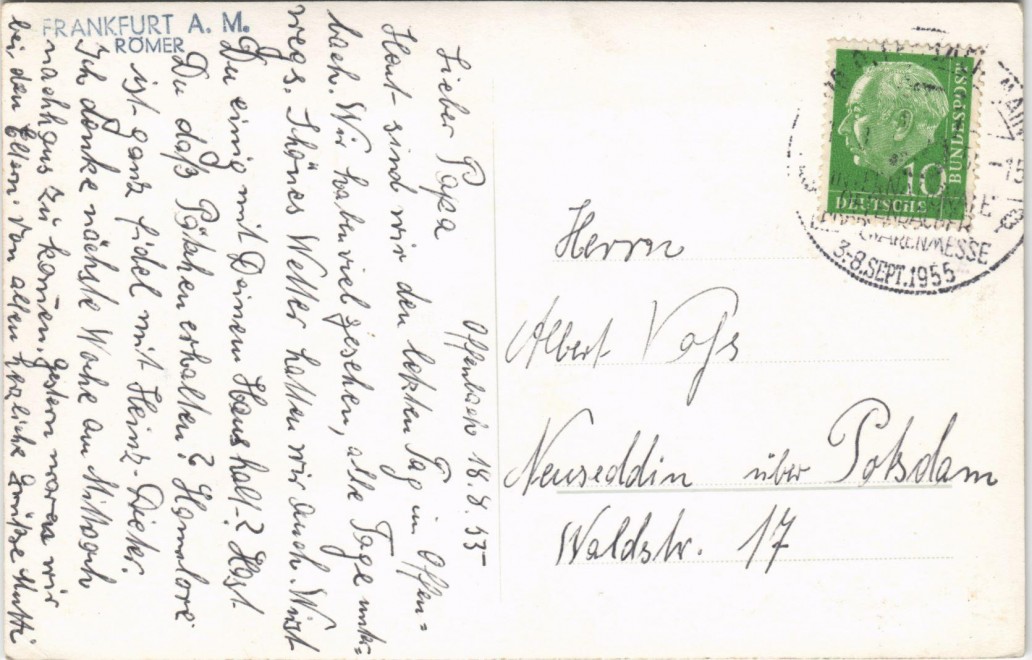 FRANKFURT A. M.
RÖMER
Offenbach 18.8.55
Lieber Papa
Heut sind wir den letzten Tag in Offen=
bach. Wir haben viel gesehen, alle Tage unter=
wegs. Schönes Wetter hatten wir auch. Wirst
Du einig mit Deinem Haushalt? Hast
Du daß Pätchen erhalten? Hannelore
ist ganz fidel mit Heinz-Dieter.
Ich denke nächste Woche am Mittwoch
nachhaus zu komen, gestern waren wir
bei den Eltern. Von allen herzliche Grüße Mutti
Herrn
Albert Voß
Neuseddin über Potsdam
Waldstr. 17
10
DEUTSCHE
BUNDESPOST
MAIN
3.-8.SEPT.1955